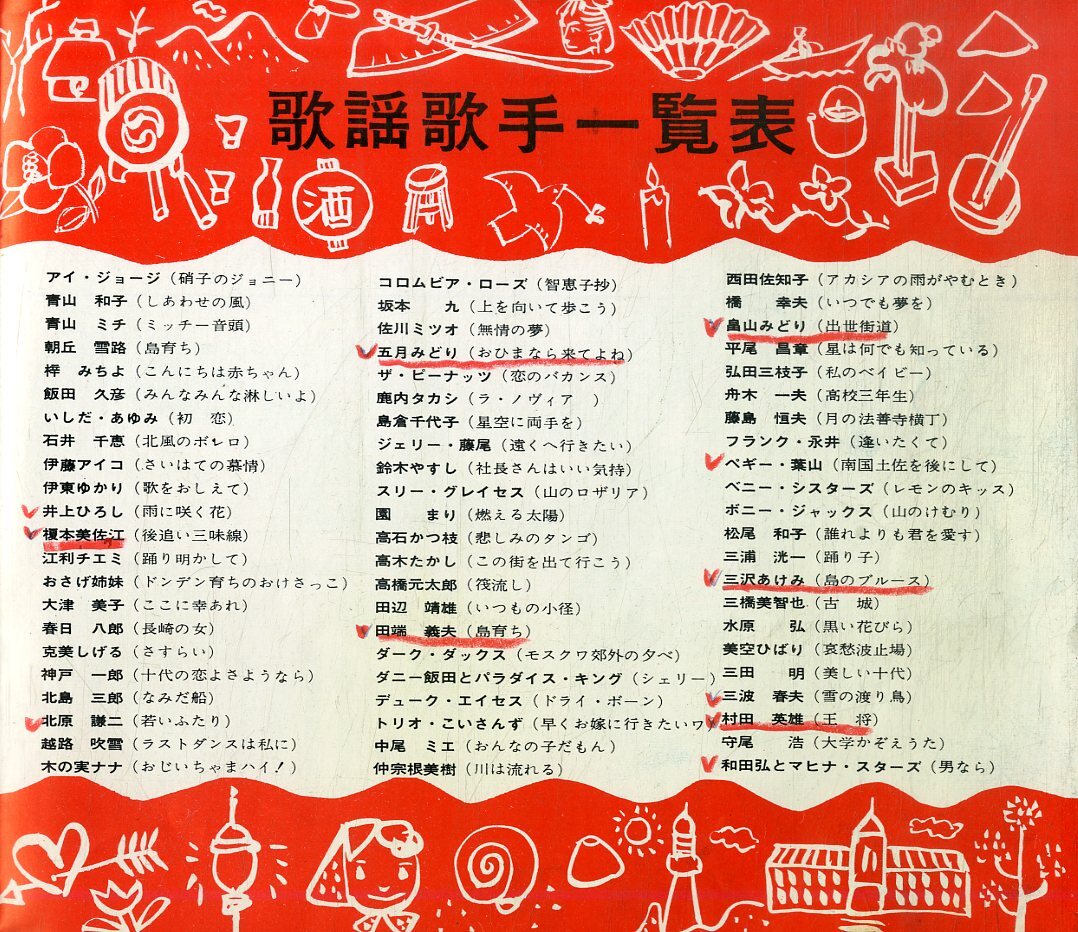 歌謡歌手一覧表
酒
アイ・ジョージ（硝子のジョニー）
青山　和子（しあわせの風）
青山　ミチ（ミッチー音頭）
朝丘　雪路（島育ち）
梓　みちよ（こんにちは赤ちゃん）
飯田　久彦（みんなみんな淋しいよ）
いしだ・あゆみ（初　恋）
石井　千恵（北風のボレロ）
伊藤アイコ（さいはての慕情）
伊東ゆかり（歌をおしえて）
井上ひろし（雨に咲く花）
榎本美佐江（後追い三味線）
江利チエミ（踊り明かして）
おさげ姉妹（ドンデン育ちのおけさっこ）
大津　美子（ここに幸あれ）
春日　八郎（長崎の女）
克美しげる（さすらい）
神戸　一郎（十代の恋よさようなら）
北島　三郎（なみだ船）
北原　謙二（若いふたり）
越路　吹雪（ラストダンスは私に）
木の実ナナ（おじいちゃまハイ！）
コロムビア・ローズ（智恵子抄）
坂本　　九（上を向いて歩こう）
佐川ミツオ（無情の夢）
五月みどり（おひまなら来てよね）
ザ・ピーナッツ（恋のバカンス）
鹿内タカシ（ラ・ノヴィア　）
島倉千代子（星空に両手を）
ジェリー・藤尾（遠くへ行きたい）
鈴木やすし（社長さんはいい気持）
スリー・グレイセス（山のロザリア）
園　　まり（燃える太陽）
高石かつ枝（悲しみのタンゴ）
高木たかし（この街を出て行こう）
高橋元太郎（筏流し）
田辺　靖雄（いつもの小径）
田端　義夫（島育ち）
ダーク・ダックス（モスクワ郊外の夕べ）
ダニー飯田とパラダイス・キング（シェリー）
デューク・エイセス（ドライ・ボーン）
トリオ・こいさんず（早くお嫁に行きたいワ）
中尾　ミエ（おんなの子だもん）
仲宗根美樹（川は流れる）
西田佐知子（アカシアの雨がやむとき）
橋　幸夫（いつでも夢を）
畠山みどり（出世街道）
平尾　昌章（星は何でも知っている）
弘田三枝子（私のベイビー）
舟木　一夫（高校三年生）
藤島　恒夫（月の法善寺横丁）
フランク・永井（逢いたくて）
ペギー・葉山（南国土佐を後にして）
ベニー・シスターズ（レモンのキッス）
ボニー・ジャックス（山のけむり）
松尾　和子（誰れよりも君を愛す）
三浦　洸一（踊り子）
三沢あけみ（島のブルース）
三橋美智也（古　城）
水原　　弘（黒い花びら）
美空ひばり（哀愁波止場）
三田　　明（美しい十代）
三波　春夫（雪の渡り鳥）
村田　英雄（王　将）
守尾　　浩（大学かぞえうた）
和田弘とマヒナ・スターズ（男なら）